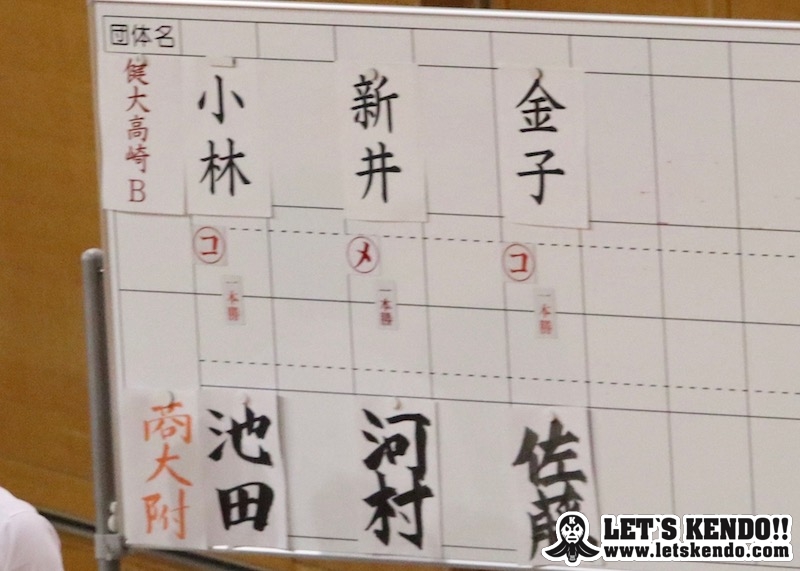 団体名
健大高崎B
小林
新井
金子
コ
メ
コ
一本勝
一本勝
一本勝
商大附
池田
河村
佐藤
LET`S KENDO!!
www.letskendo.com